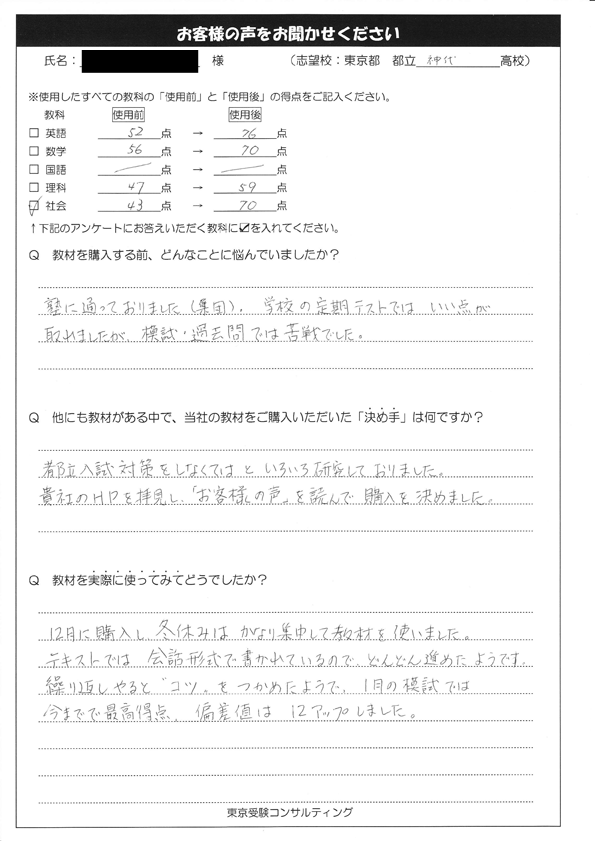 お客様の声をお聞かせください
氏名： 様 （志望校：東京都 都立 神代 高校）
※使用したすべての教科の「使用前」と「使用後」の得点をご記入ください。
教科 使用前 使用後
□ 英語 52点 → 76点
□ 数学 56点 → 70点
□ 国語 ／点 → ／点
□ 理科 47点 → 59点
☑ 社会 43点 → 70点
↑下記のアンケートにお答えいただく教科に☑を入れてください。
Q 教材を購入する前、どんなことに悩んでいましたか？
塾に通っておりました（集団）。学校の定期テストでは いい点が
取れましたが、模試・過去問では苦戦でした。
Q 他にも教材がある中で、当社の教材をご購入いただいた「決め手」は何ですか？
都立入試対策をしなくてはと いろいろ研究しておりました。
貴社のHPを拝見し、「お客様の声」を読んで 購入を決めました。
Q 教材を実際に使ってみてどうでしたか？
12月に購入し、冬休みは かなり集中して教材を使いました。
テキストでは 会話形式で書かれているので、どんどん進めたようです。
繰り返しやると “コツ”をつかめたようで、1月の模試では
今までで最高得点、偏差値は 12アップしました。
東京受験コンサルティング